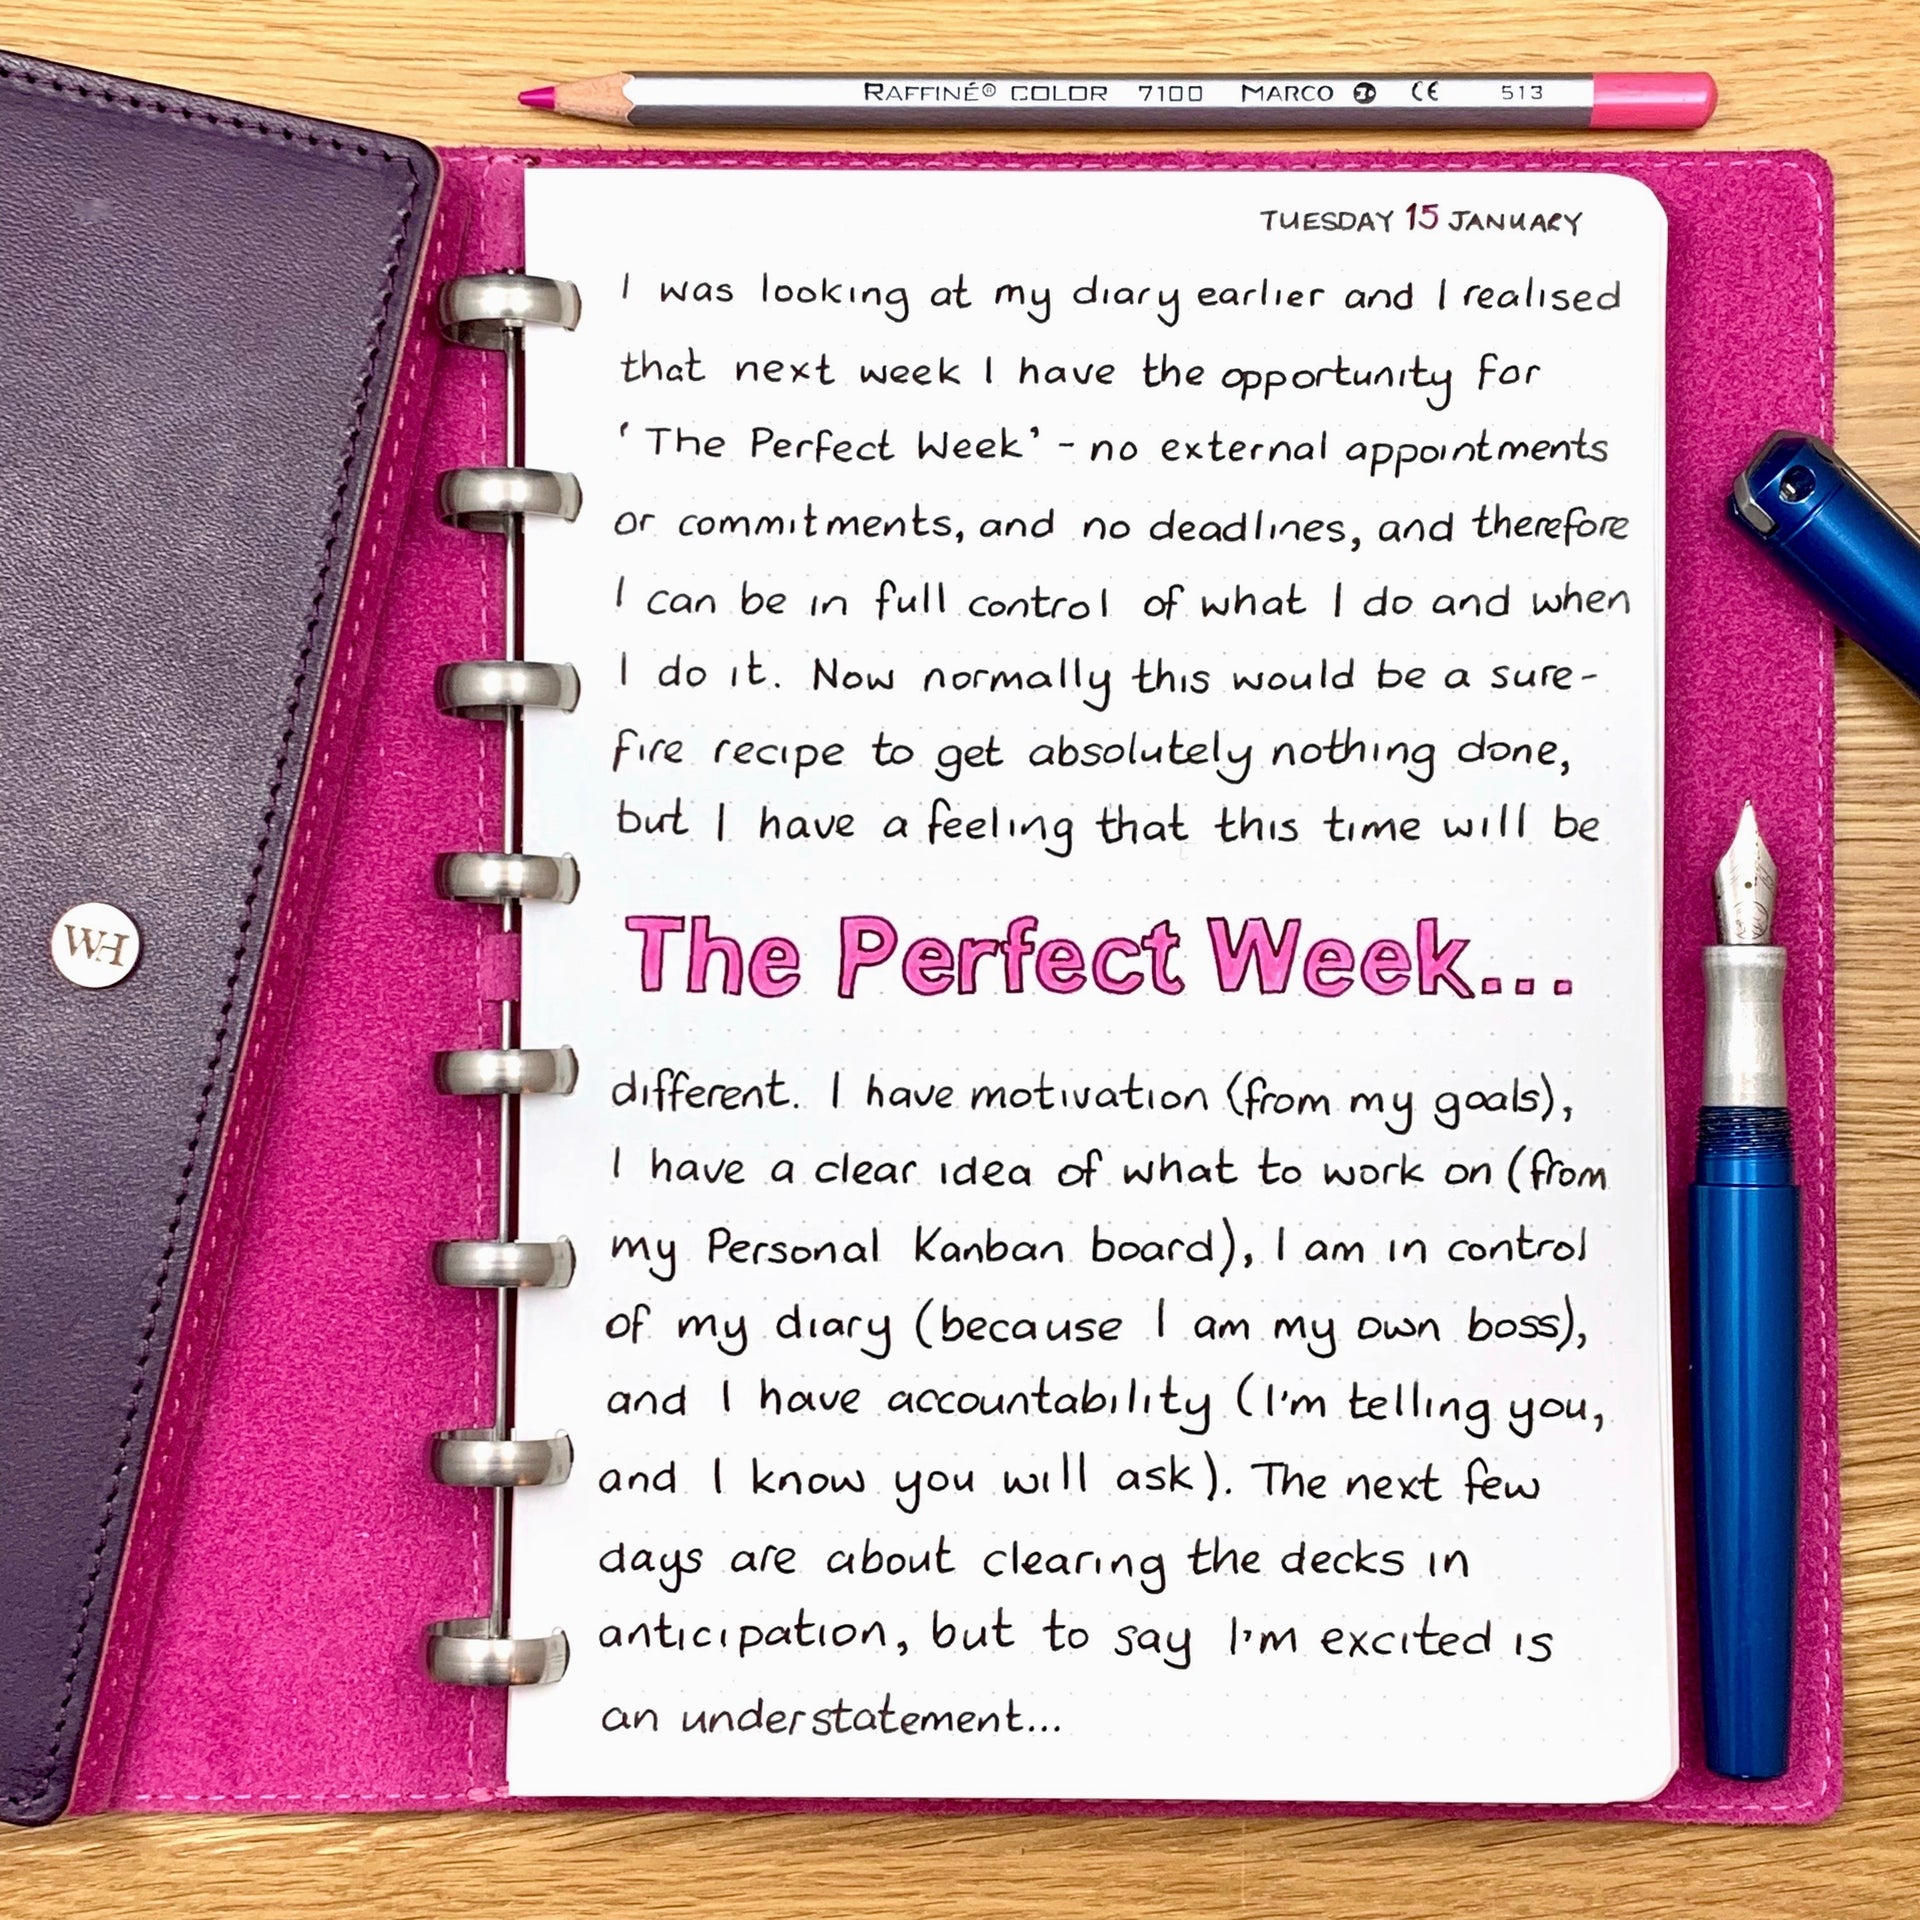 RAFFINÉ® COLOR 7100 MARCO CE 513
TUESDAY 15 JANUARY
I was looking at my diary earlier and I realised
that next week I have the opportunity for
'The Perfect Week' - no external appointments
or commitments, and no deadlines, and therefore
I can be in full control of what I do and when
I do it. Now normally this would be a sure-
fire recipe to get absolutely nothing done,
but I have a feeling that this time will be
The Perfect Week...
different. I have motivation (from my goals),
I have a clear idea of what to work on (from
my Personal Kanban board), I am in control
of my diary (because I am my own boss),
and I have accountability (I'm telling you,
and I know you will ask). The next few
days are about clearing the decks in
anticipation, but to say I'm excited is
an understatement...
WH